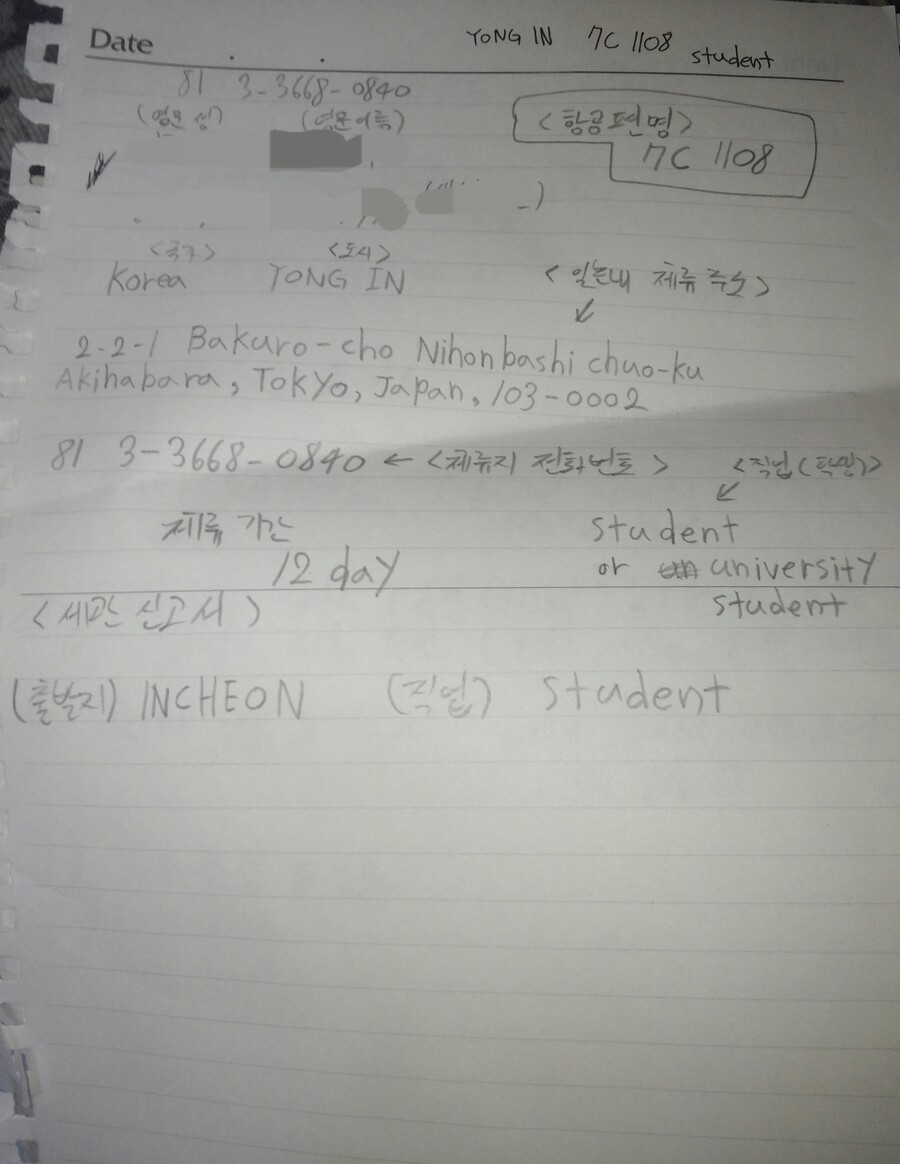 Date YONG IN 7C 1108 student
81 3-3668-0840
(영문 성) (영문 이름) <항공편명>
7C 1108
<국가> <도시>
Korea YONG IN <일본내 체류 주소>
2-2-1 Bakuro-cho Nihonbashi chuo-ku
Akihabara, Tokyo, Japan, 103-0002
81 3-3668-0840 ← <체류지 전화번호> <직업(학생)>
체류 기간 student
12 day or university
<세관 신고서> student
(출발지) INCHEON (직업) student